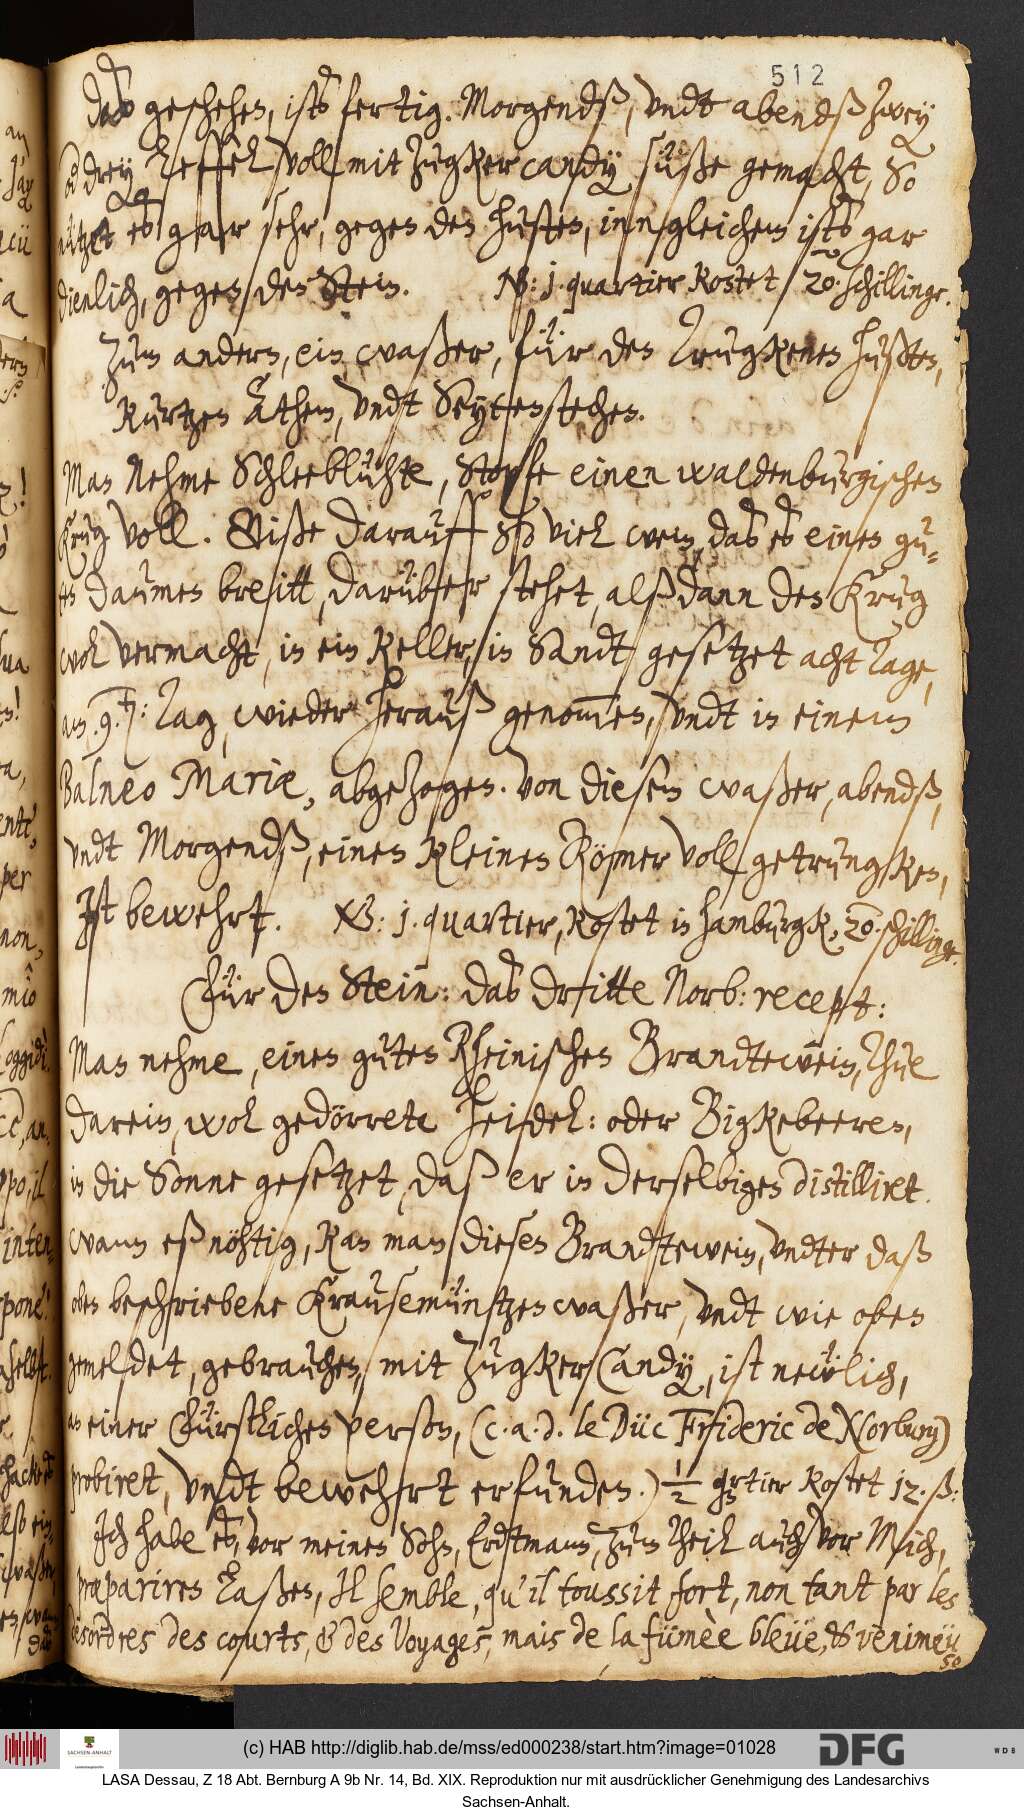 512
das geschehen, ists fertig. Morgendß, vndt abendß zwey
od drey Leffel voll mit Zugkercandÿ süße gemacht, So
nützet es gar sehr, gegen den husten, inngleichem ists gar
dienlich, gegen den Stein. NB: j. quartier kostet 20. schillinge.
Zum andern, ein waßer, für den Trugkenen hußten,
kurtzen Athem, vndt Seytenstechen.
Man Nehme Schleeblühte, Stopfe einen waldenburgischen
Krug voll. Gieße darauff so viel wein, das es eines gu-
ten daumes breitt, darüber stehet, alßdann den Krug
wol vermacht, in ein keller, in Sandt gesetzet acht Tage,
am, 9.ten: Tag, wieder herauß genommen, vndt in einem
Balneo Mariæ, abgezogen. Von diesem waßer, abendß,
vndt Morgendß, einen kleinen Römer voll getrungken,
Ist bewehrt. NB: j. quartier, kostet in hamburgk, 20. schillinge.
Für den Stein: das dritte Norb: recept:
Man nehme, einen guten Rheinischen Brandtewein, Thue
darein, wol gedörrete Heidel: oder Bigkebeeren,
in die Sonne gesetzet, daß er in derselbigen distillire.
wann eß nöhtig, kan man diesen Brandtewein, vndter daß
oben beschriebene Krausemüntzenwaßer, vndt wie oben
gemeldet, gebrauchen, mit Zugker Candÿ, ist neẅlich,
an einer Fürstlichen person, (c. a. d. le Düc Frideric de Norburg)
probiret, vndt bewehrt erfunden.) 1/2 qrtier kostet 12. ß:
Ich habe es, vor meinen Sohn, Erdtmann, zum theil auch vor Mich,
præpariren Laßen, Il semble, qu'il toussit fort, non tant par les
desordres des courts, & des Voyages, mais de la fümèe bleüe, & venimeü
se
(c) HAB http://diglib.hab.de/mss/ed000238/start.htm?image=01028
SACHSEN-ANHALT
DFG
WDB
LASA Dessau, Z 18 Abt. Bernburg A 9b Nr. 14, Bd. XIX. Reproduktion nur mit ausdrücklicher Genehmigung des Landesarchivs
Sachsen-Anhalt.